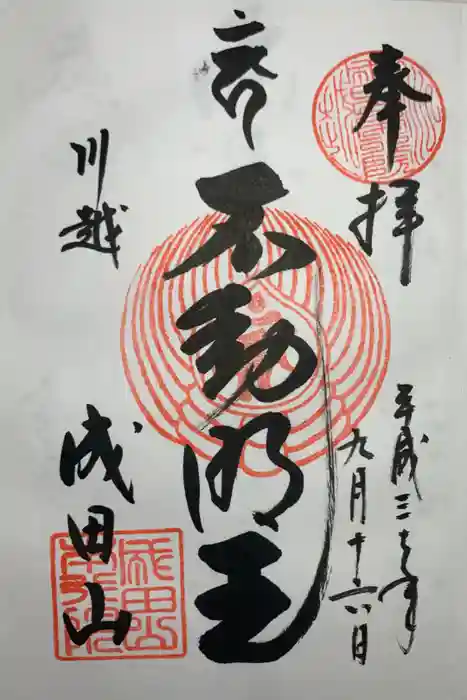 奉拝
平成三十年
九月十六日
不動明王
川越
成田山